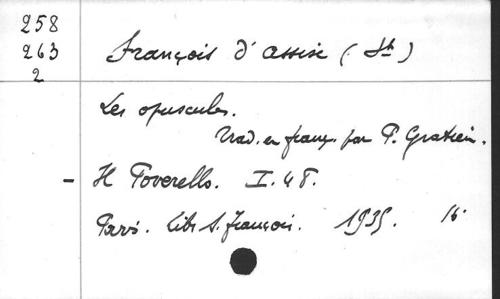 258
263
2
François d'Assise (St)
Les opuscules.
Trad. en franç. par P. Gratien.
- Il Poverello. I. 4 T.
Paris. Libr S. François. 1935. 16°